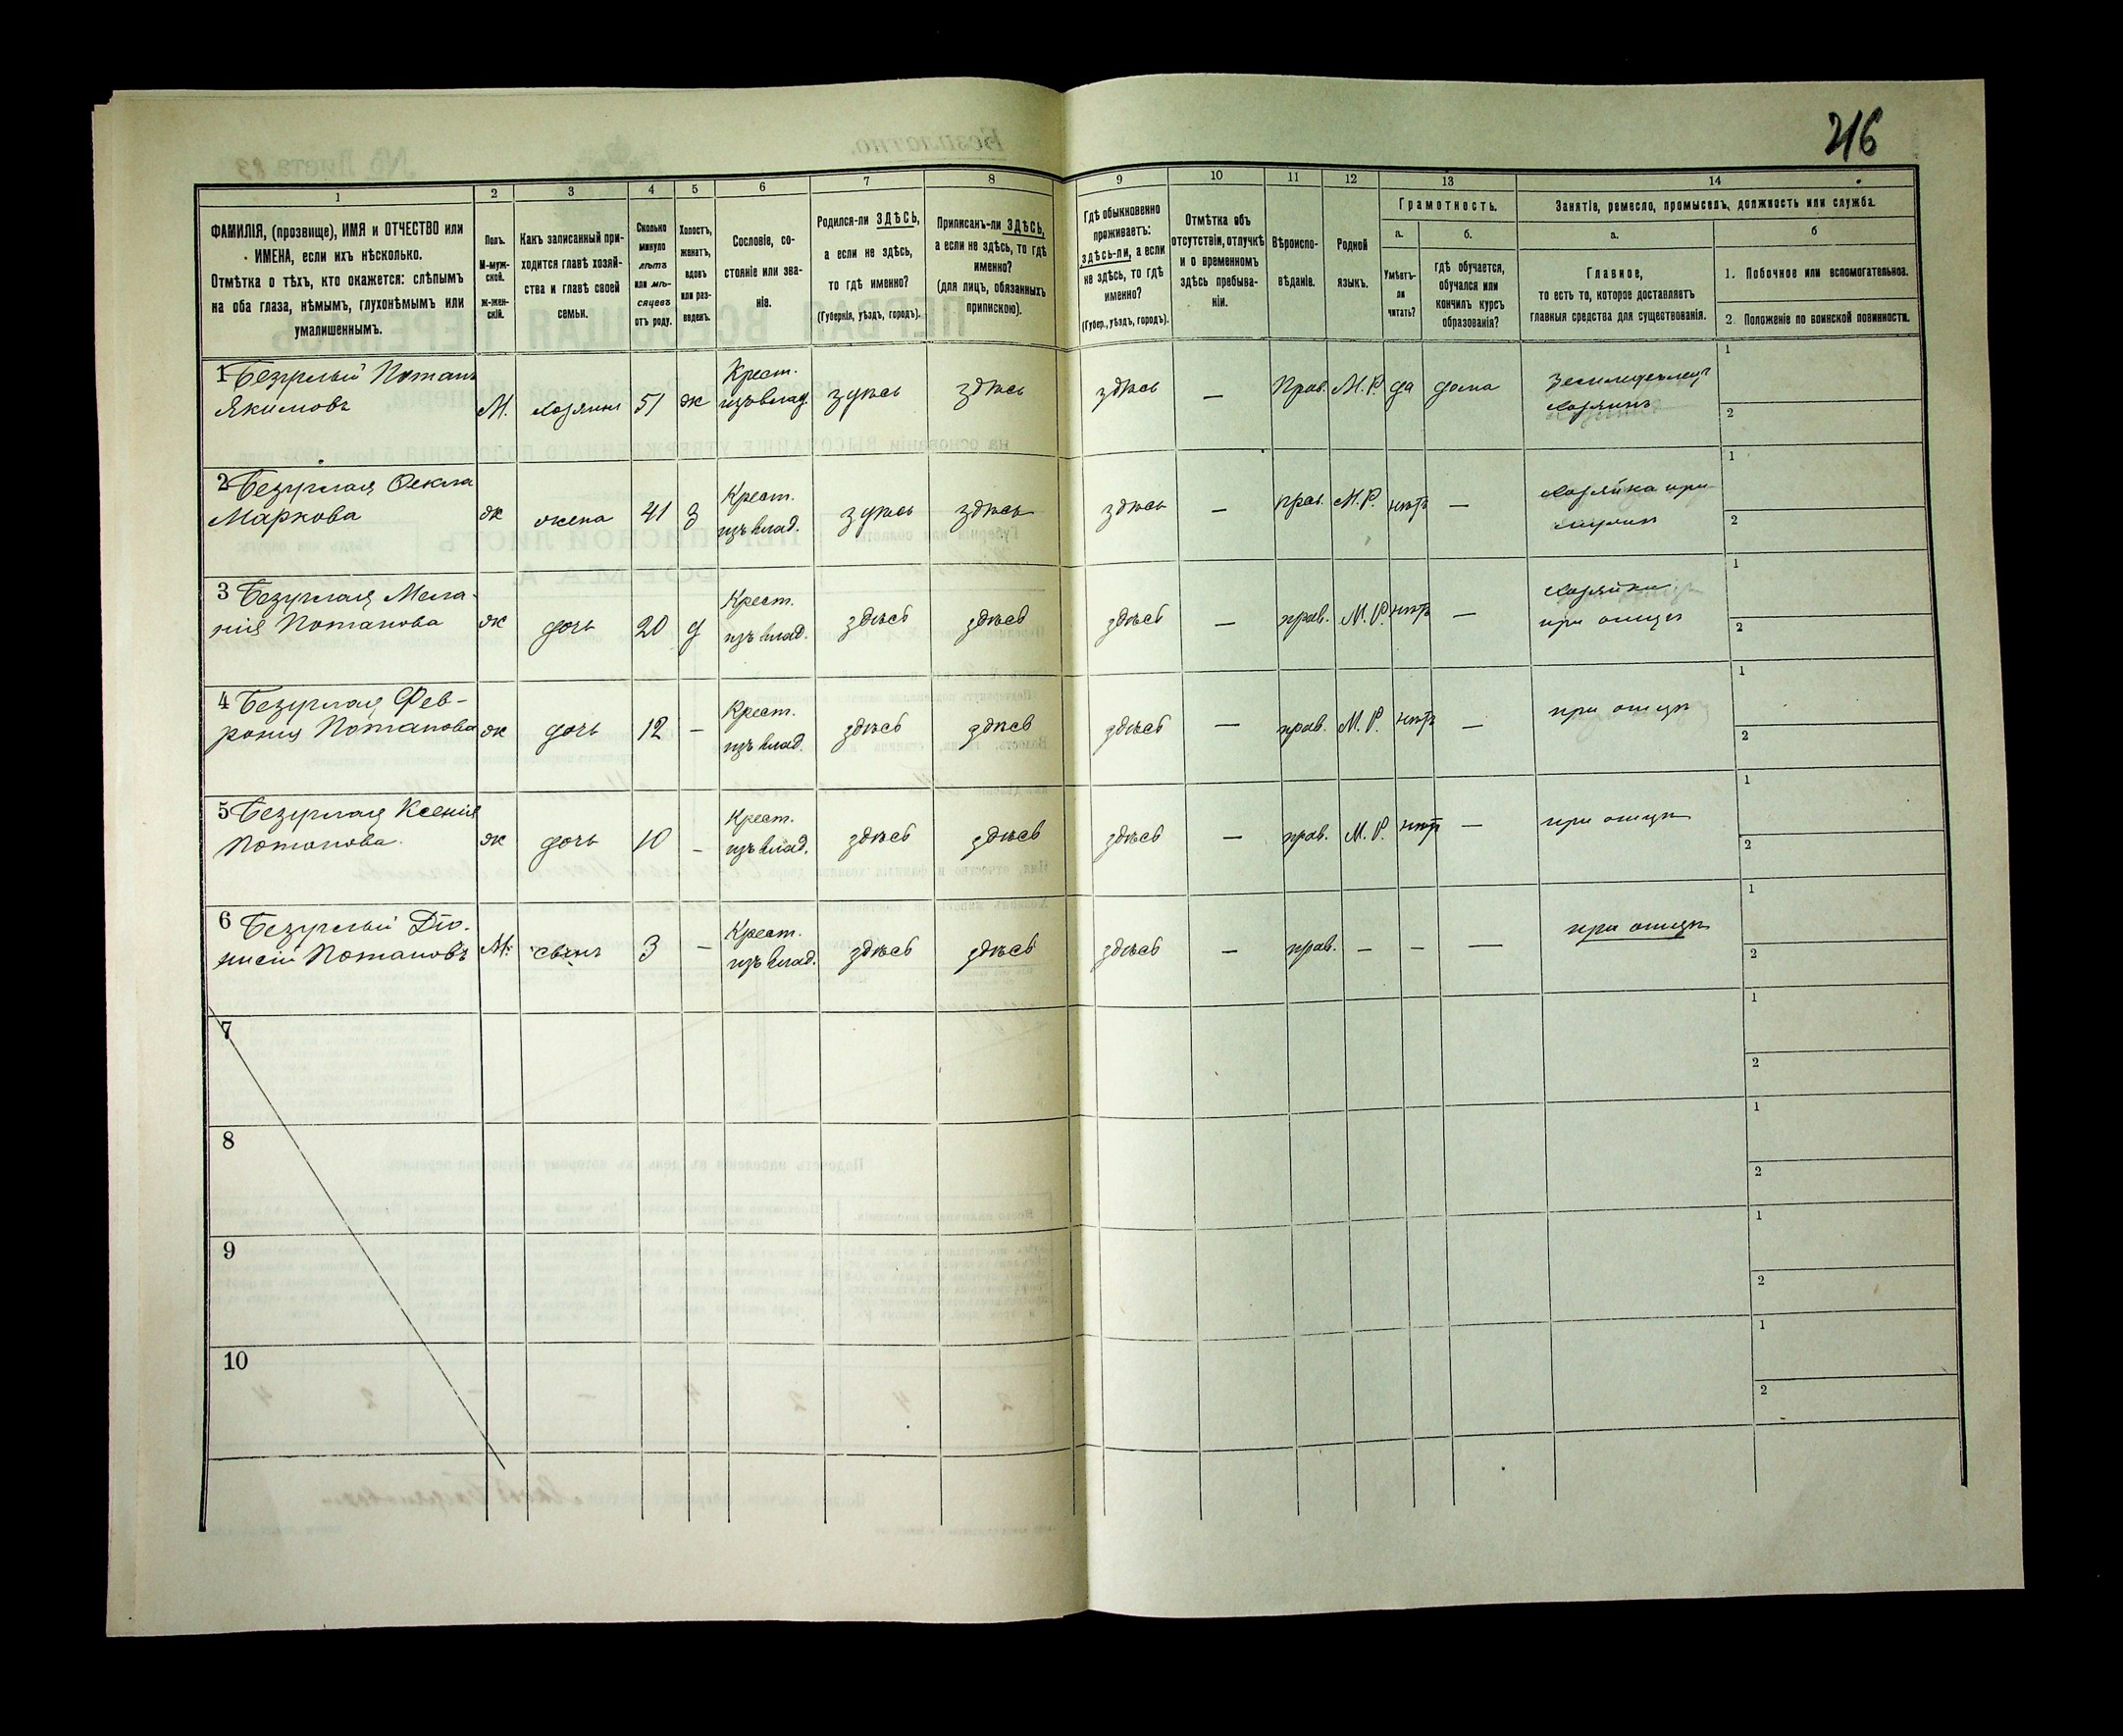 216
1 2 3 4 5 6 7 8 9 10 11 12 13 14
ФАМИЛІЯ, (прозвище), ИМЯ и ОТЧЕСТВО или
ИМЕНА, если ихъ нѣсколько.
Отмѣтка о тѣхъ, кто окажется: слѣпымъ
на оба глаза, нѣмымъ, глухонѣмымъ или
умалишеннымъ.
Полъ.
М-муж-
ской.
Ж-жен-
скій.
Какъ записанный при-
ходится главѣ хозяй-
ства и главѣ своей
семьи.
Сколько
минуло
лѣтъ
или мѣ-
сяцевъ
отъ роду.
Холостъ,
женатъ,
вдовъ
или раз-
веденъ.
Сословіе, со-
стояніе или зва-
ніе.
Родился-ли ЗДѢСЬ,
а если не здѣсь,
то гдѣ именно?
(Губернія, уѣздъ, городъ).
Приписанъ-ли ЗДѢСЬ,
а если не здѣсь, то гдѣ
именно?
(для лицъ, обязанныхъ
припискою).
Гдѣ обыкновенно
проживаетъ:
здѣсь-ли, а если
не здѣсь, то гдѣ
именно?
(Губер., уѣздъ, городъ).
Отмѣтка объ
отсутствіи, отлучкѣ
и о временномъ
здѣсь пребыва-
ніи.
Вѣроиспо-
вѣданіе.
Родной
языкъ.
Грамотность.
а.
Умѣетъ-
ли
читать?
б.
гдѣ обучается,
обучался или
кончилъ курсъ
образованія?
Занятіе, ремесло, промыселъ, должность или служба.
а.
Главное,
то есть то, которое доставляетъ
главныя средства для существованія.
б
1. Побочное или вспомогательное.
2. Положеніе по воинской повинности.
1 Безуглый Потапъ
Якимовъ
М. хозяинъ 51 ж
Крест.
изъ влад.
здѣсь здѣсь здѣсь — Прав. М.Р. да дома
Земледѣлецъ
хозяинъ
1
2
2 Безуглая Фекла
Маркова
ж жена 41 з
Крест.
изъ влад.
здѣсь здѣсь здѣсь — прав. М.Р. нѣтъ —
Хозяйка при
1
2
3 Безуглая Мела-
нія Потапова
ж дочь 20 д
Крест.
изъ влад.
здѣсь здѣсь здѣсь — прав. М.Р. нѣтъ —
Хозяйки
при отцѣ
1
2
4 Безуглая Фев-
ронія Потапова
ж дочь 12 —
Крест.
изъ влад.
здѣсь здѣсь здѣсь — прав. М.Р. нѣтъ —
при отцѣ
1
2
5 Безуглая Ксенія
Потапова.
ж дочь 10 —
Крест.
изъ влад.
здѣсь здѣсь здѣсь — прав. М.Р. нѣтъ —
при отцѣ
1
2
6 Безуглый Діо-
нисій Потаповъ
М. сынъ 3 —
Крест.
изъ влад.
здѣсь здѣсь здѣсь — прав. — — —
при отцѣ
1
2
7
1
2
8
1
2
9
1
2
10
1
2